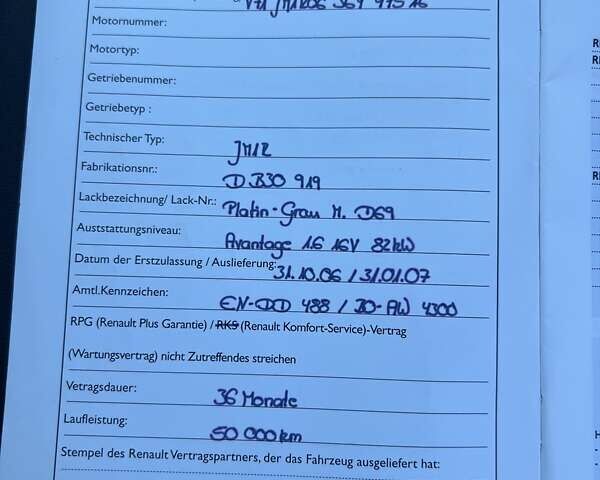 Motornummer:
Motortyp:
Getriebenummer:
Getriebetyp :
Technischer Typ: JM1R
Fabrikationsnr.: DB30 919
Lackbezeichnung/ Lack-Nr.: Platin-Grau M. D69
Auststattungsniveau: Avantage 1.6 16V 82kW
Datum der Erstzulassung / Auslieferung: 31.10.06 / 31.01.07
Amtl.Kennzeichen: EN-DD 488 / DO-AW 4300
RPG (Renault Plus Garantie) / RKS (Renault Komfort-Service)-Vertrag
(Wartungsvertrag) nicht Zutreffendes streichen
Vetragsdauer: 36 Monate
Laufleistung: 50 000km
Stempel des Renault Vertragspartners, der das Fahrzeug ausgeliefert hat: